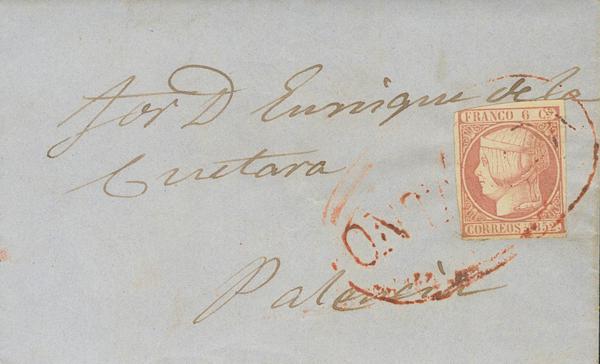 Sor D Enrique de la
Cuetara
Palencia
FRANCO 6 Cs
CORREOS 1852